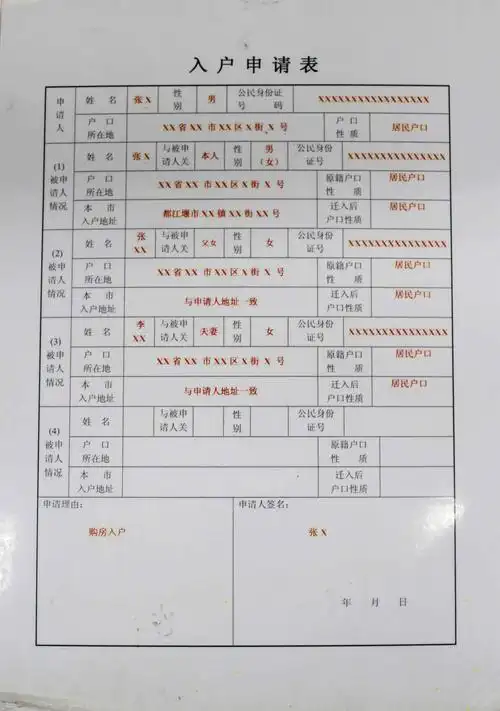 入户申请表
申请人 姓名 张X 性别 男 公民身份证号码 XXXXXXXXXXXXXXXX
户口所在地 XX省XX 市XX区X街 X 号 户口性质 居民户口
(1) 被申请人情况 姓名 张X 与被申请人关 本人 性别 男(女) 公民身份证号 XXXXXXXXXXXXXX
户口所在地 XX省XX 市XX区X街 X 号 原籍户口性质 居民户口
本市入户地址 都江堰市XX镇XX街 X 号 迁入后户口性质 居民户口
(2) 被申请人情况 姓名 张XX 与被申请人关 父女 性别 女 公民身份证号 XXXXXXXXXXXXXX
户口所在地 XX省XX 市XX区X街 X 号 原籍户口性质 居民户口
本市入户地址 与申请人地址一致 迁入后户口性质 居民户口
(3) 被申请人情况 姓名 李XX 与被申请人关 夫妻 性别 女 公民身份证号 XXXXXXXXXXXXXX
户口所在地 XX省XX 市XX区X街 X 号 原籍户口性质 居民户口
本市入户地址 与申请人地址一致 迁入后户口性质 居民户口
(4) 被申请人情况 姓名 与被申请人关 性别 公民身份证号
户口所在地 原籍户口性质
本市入户地址 迁入后户口性质
申请理由: 申请人签名:
购房入户 张X
年 月 日